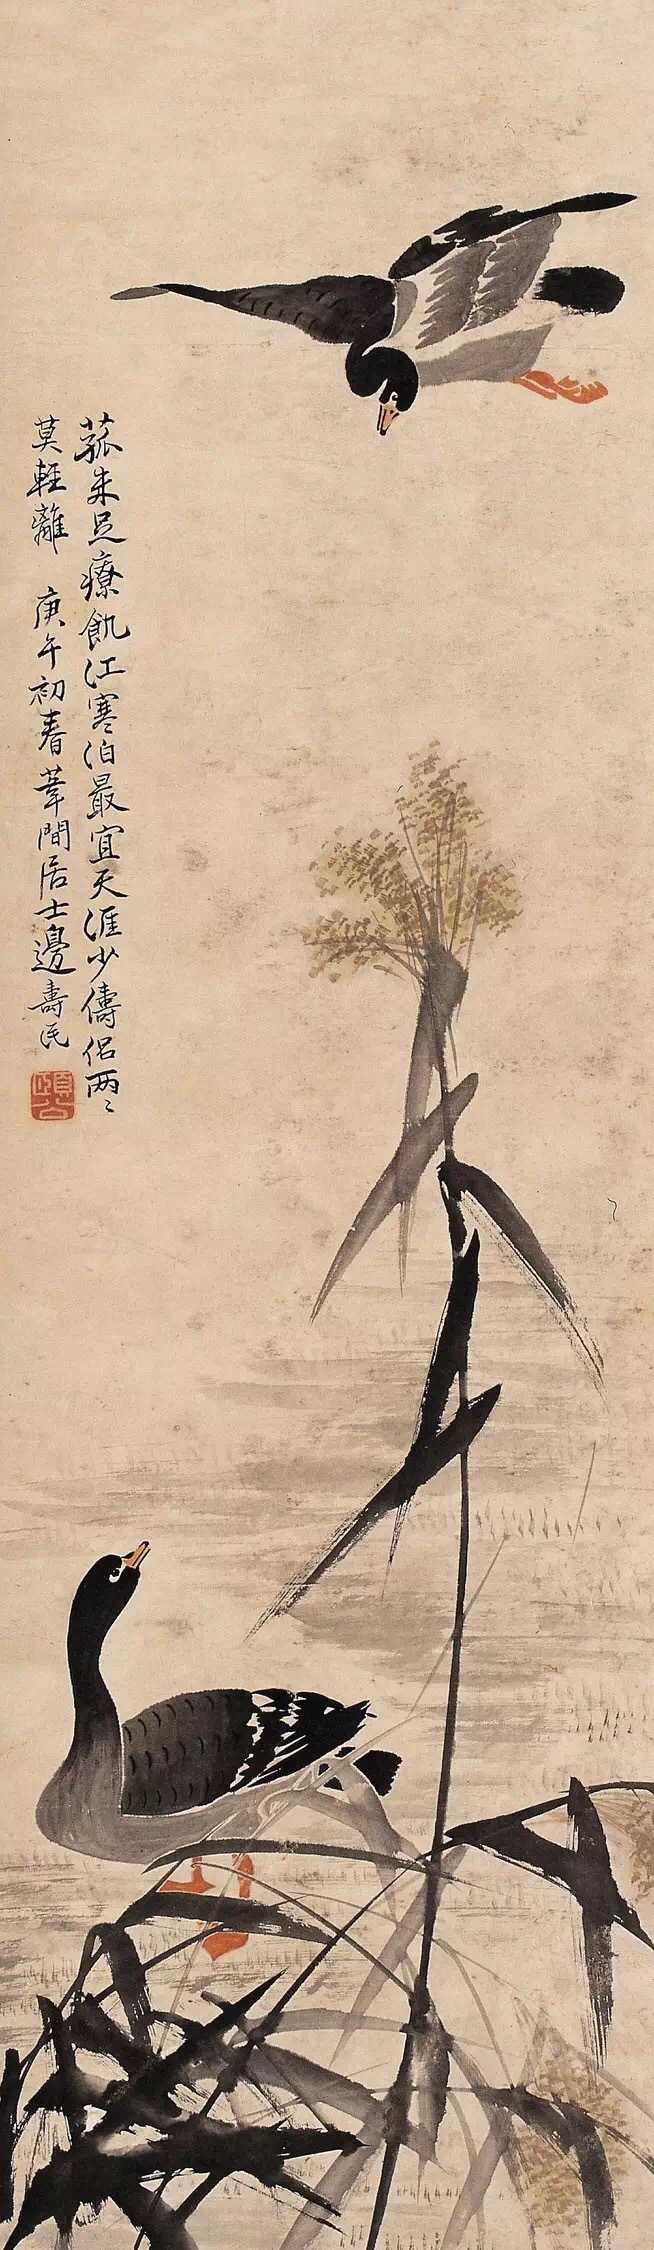 菰米足療飢江寒泊最宜天涯少儔侶兩〻
莫輕離　庚午初春葦間居士邊壽民
頤公